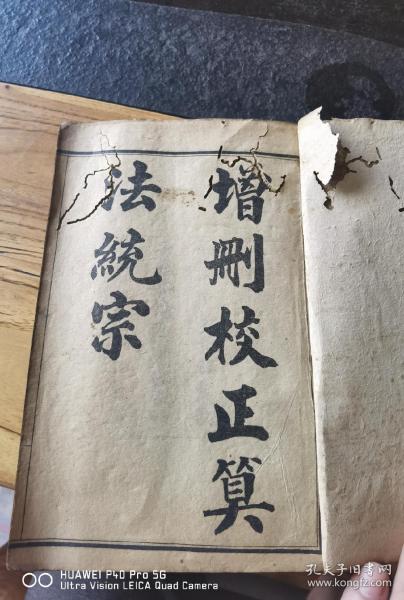 增刪校正算
法統宗
HUAWEI P40 Pro 5G
Ultra Vision LEICA Quad Camera
孔夫子旧书网
www.kongfz.com